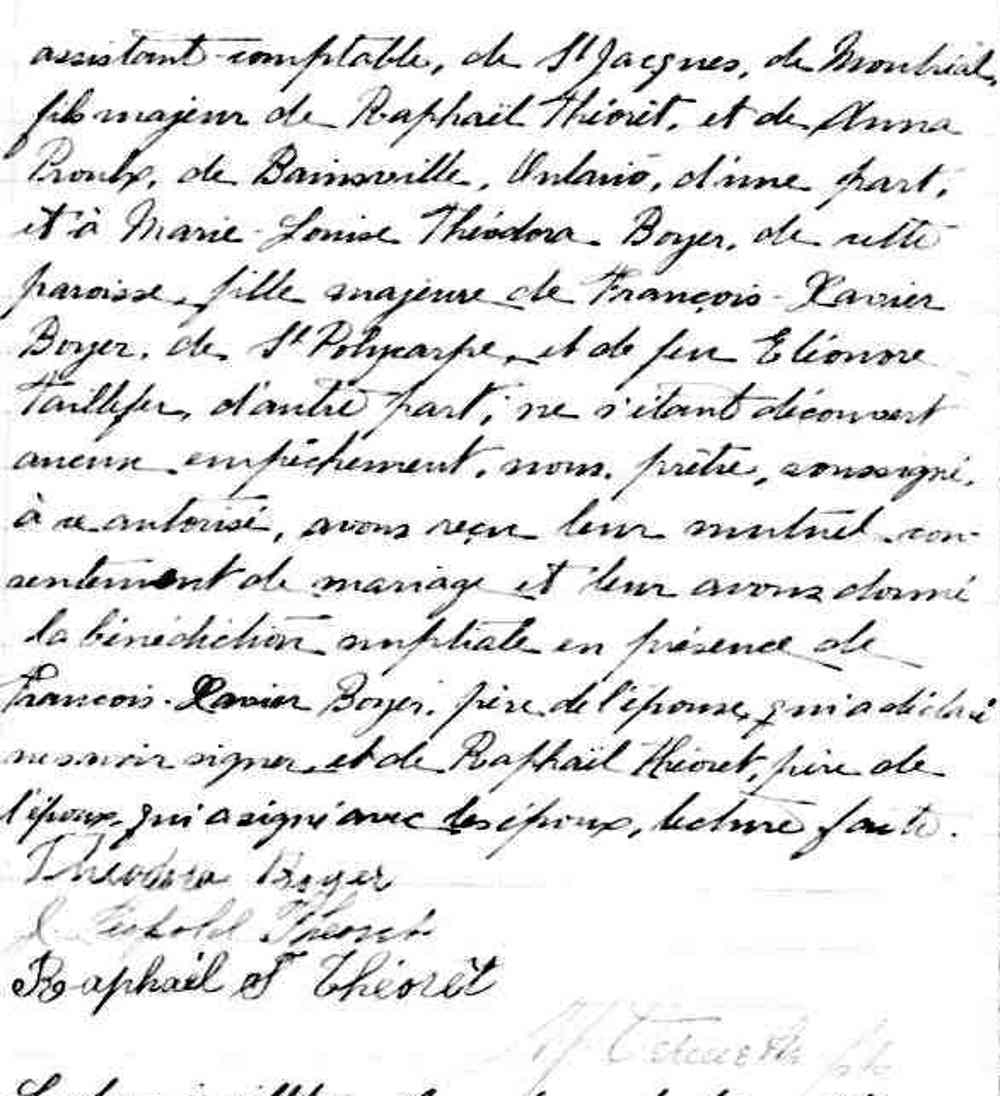 assistant-comptable, de St Jacques, de Montréal,
fils majeur de Raphaël Théorêt, et de Anna
Proulx, de Bainsville, Ontario, d'une part;
et à Marie-Louise Théodora Boyer, de cette
paroisse, fille majeure de François-Xavier
Boyer, de St Polycarpe, et de feu Eléonore
Taillefer, d'autre part; ne s'étant découvert
aucun empêchement, nous, prêtre, soussigné,
à ce autorisé, avons reçu leur mutuel con-
sentement de mariage et leur avons donné
la bénédiction nuptiale en présence de
François-Xavier Boyer, père de l'épouse, qui a déclaré
ne savoir signer, et de Raphaël Théoret, père de
l'époux, qui a signé avec les époux, lecture faite.
Théodora Boyer
J Léopold Théorêt
Raphaël T Théorêt
ptr